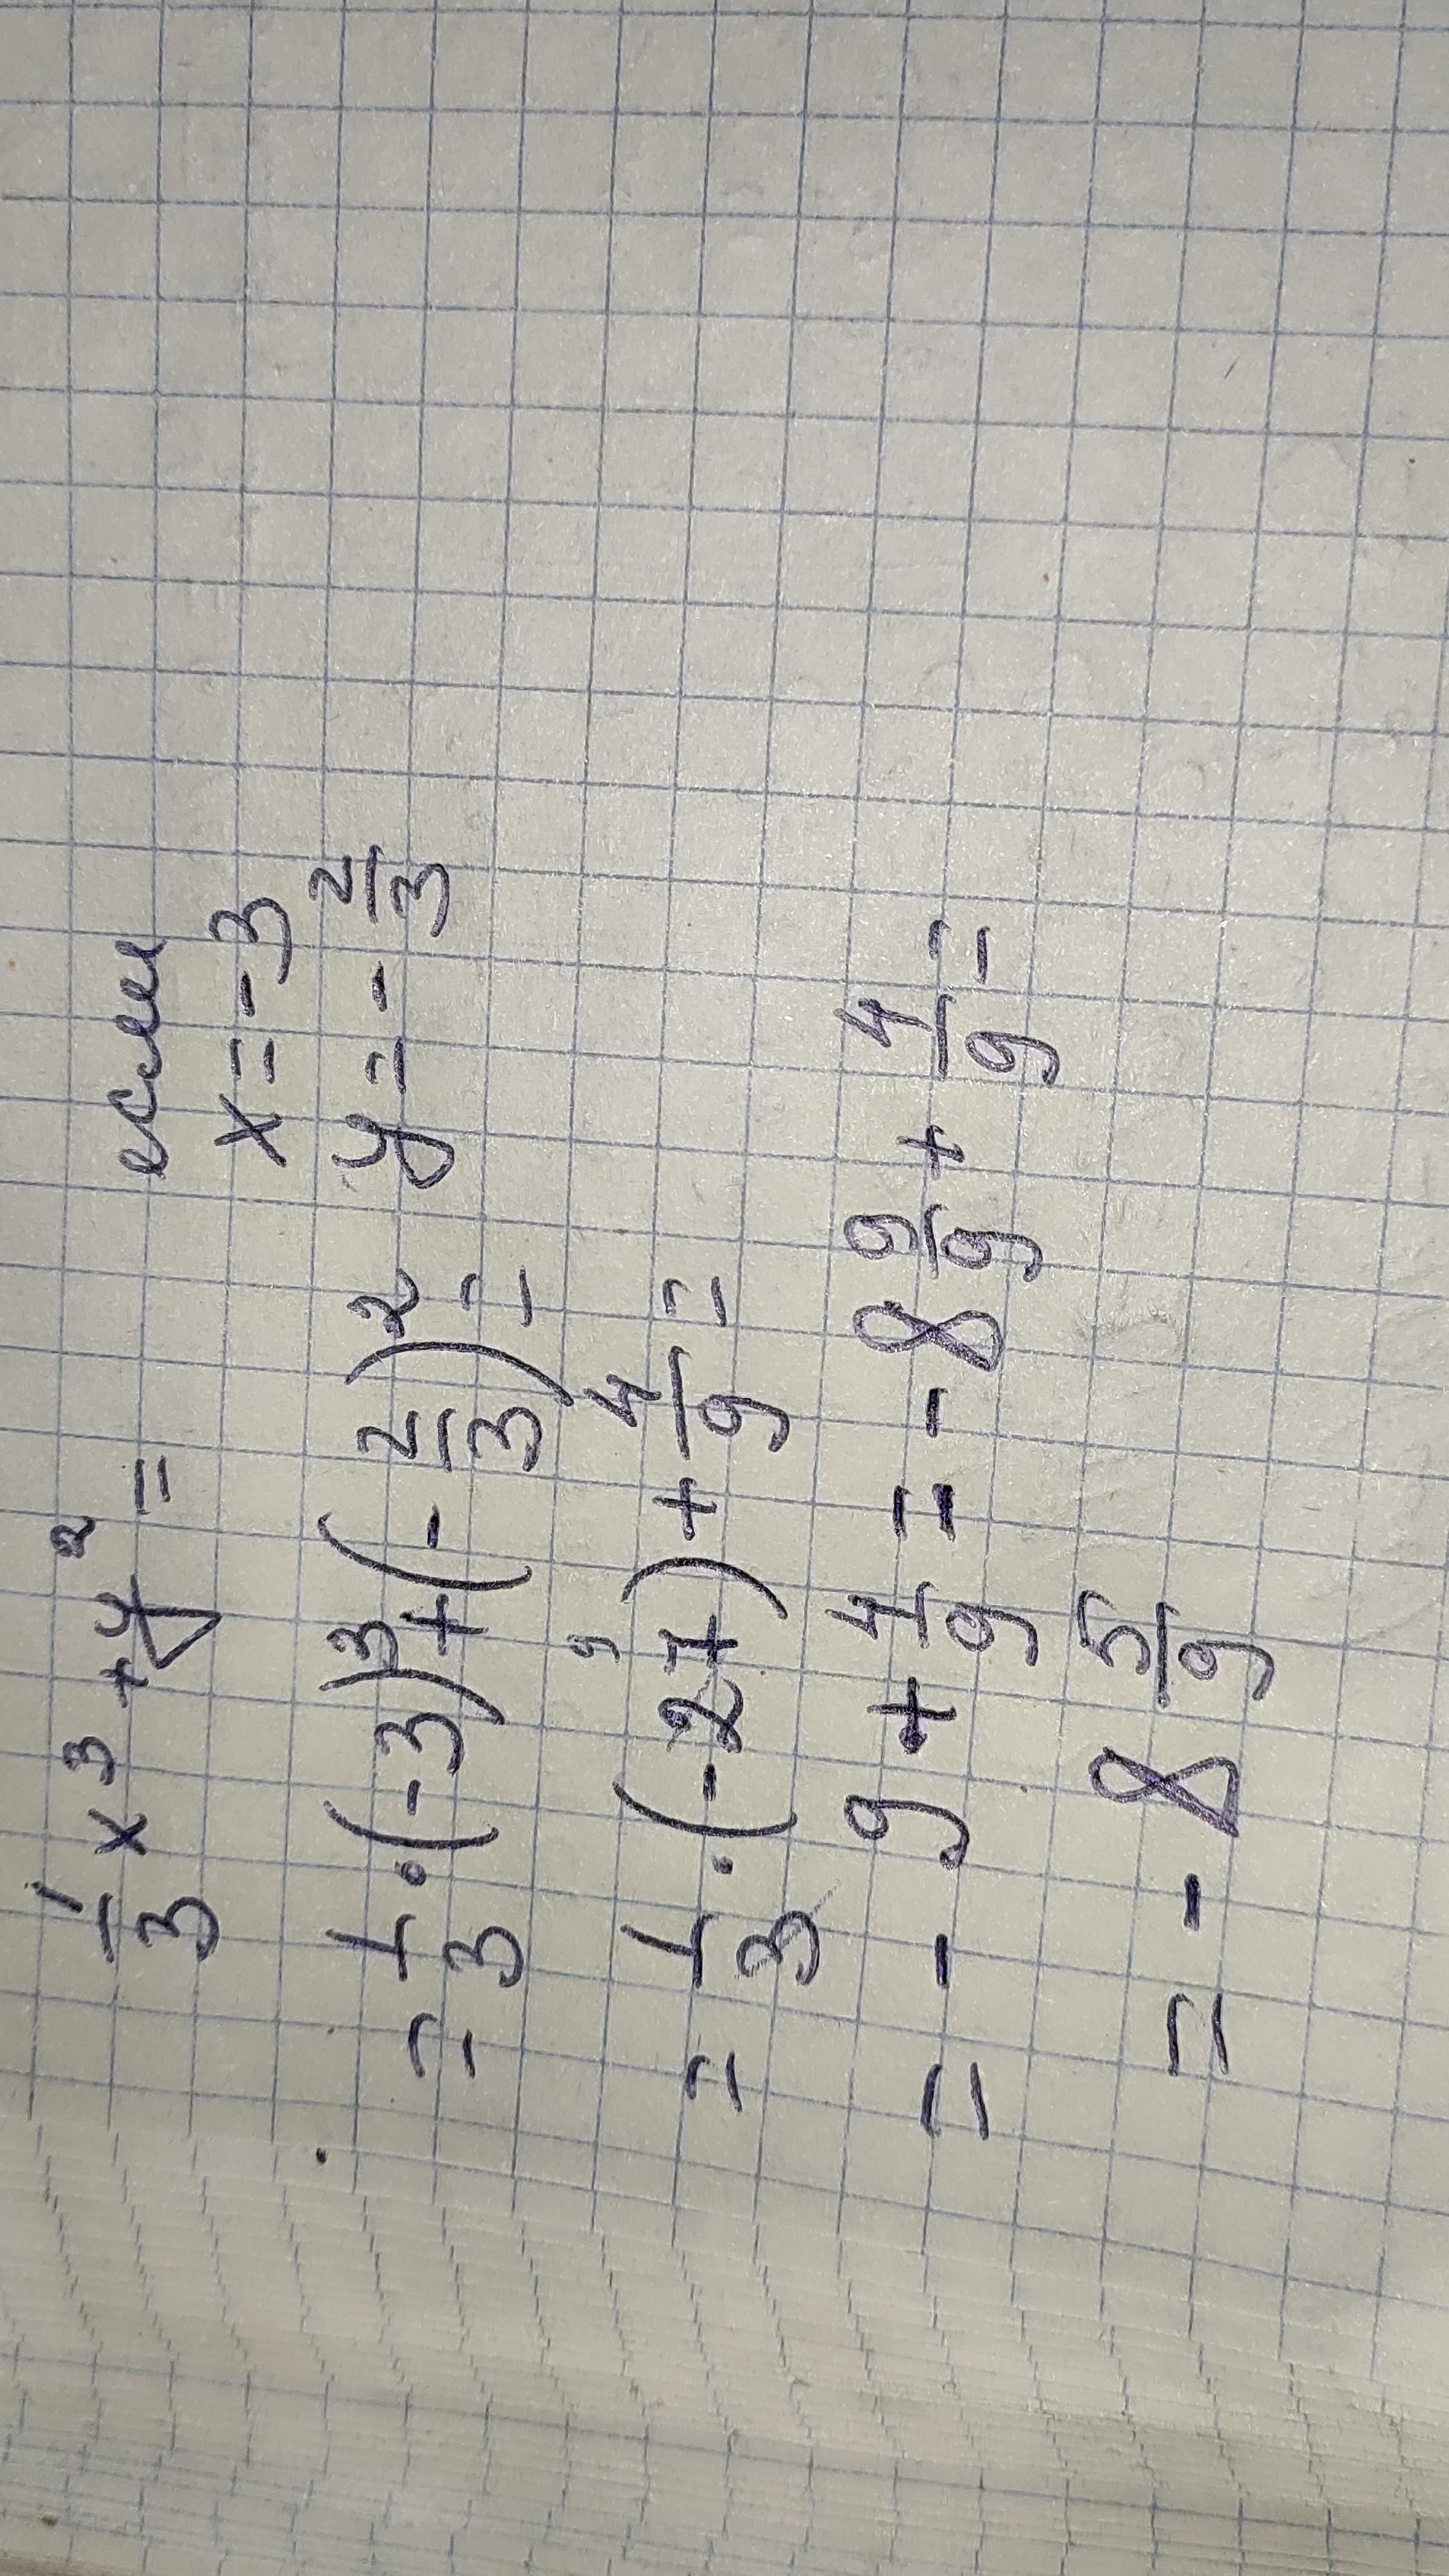 1/3 x³ + y² = если
x = -3
y = -2/3
= 1/3 · (-3)³ + (-2/3)² =
= 1/3 · (-27) 9 + 4/9 =
= -9 + 4/9 = -8 9/9 + 4/9 =
= -8 5/9